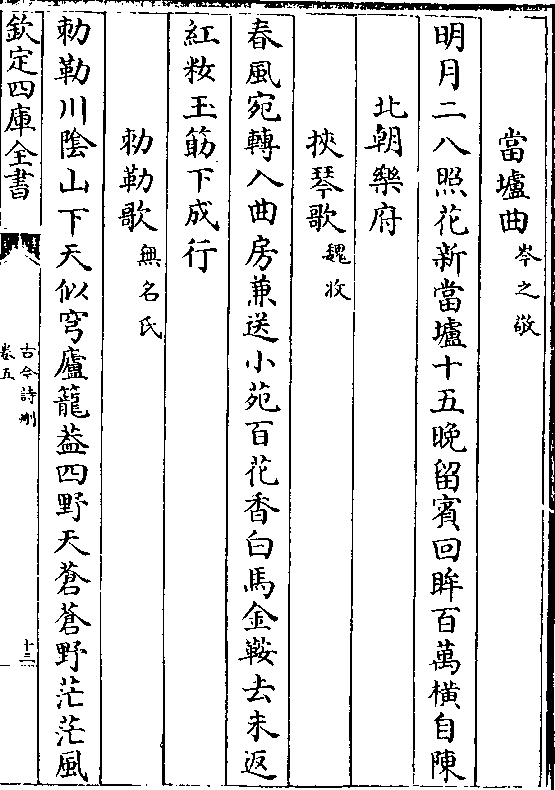 當壚曲 岑之敬
明月二八照花新當壚十五晚留賓回眸百萬橫自陳
北朝樂府
挾琴歌 魏收
春風宛轉入曲房兼送小苑百花香白馬金鞍去未返
紅粧玉筯下成行
勅勒歌 無名氏
勅勒川陰山下天似穹廬籠蓋四野天蒼蒼野茫茫風
欽定四庫全書
古今詩刪
卷五
十三